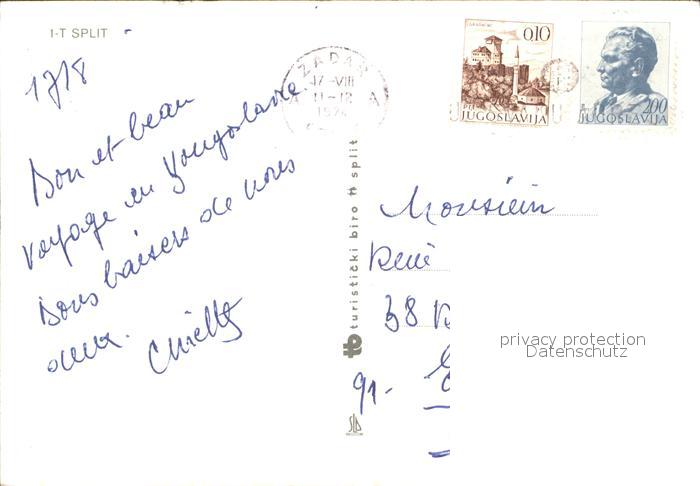 1-T SPLIT
17/8
Bon et beau
voyage en Yougoslavie.
Bons baisers de nous
deux.
ZADAR
17-VIII
11-12
A
GRADAČAC
0,10
PTT
JUGOSLAVIJA
2,00
JUGOSLAVIJA
tb turistički biro tt split
Monsieur
René
38
91-
privacy protection
Datenschutz